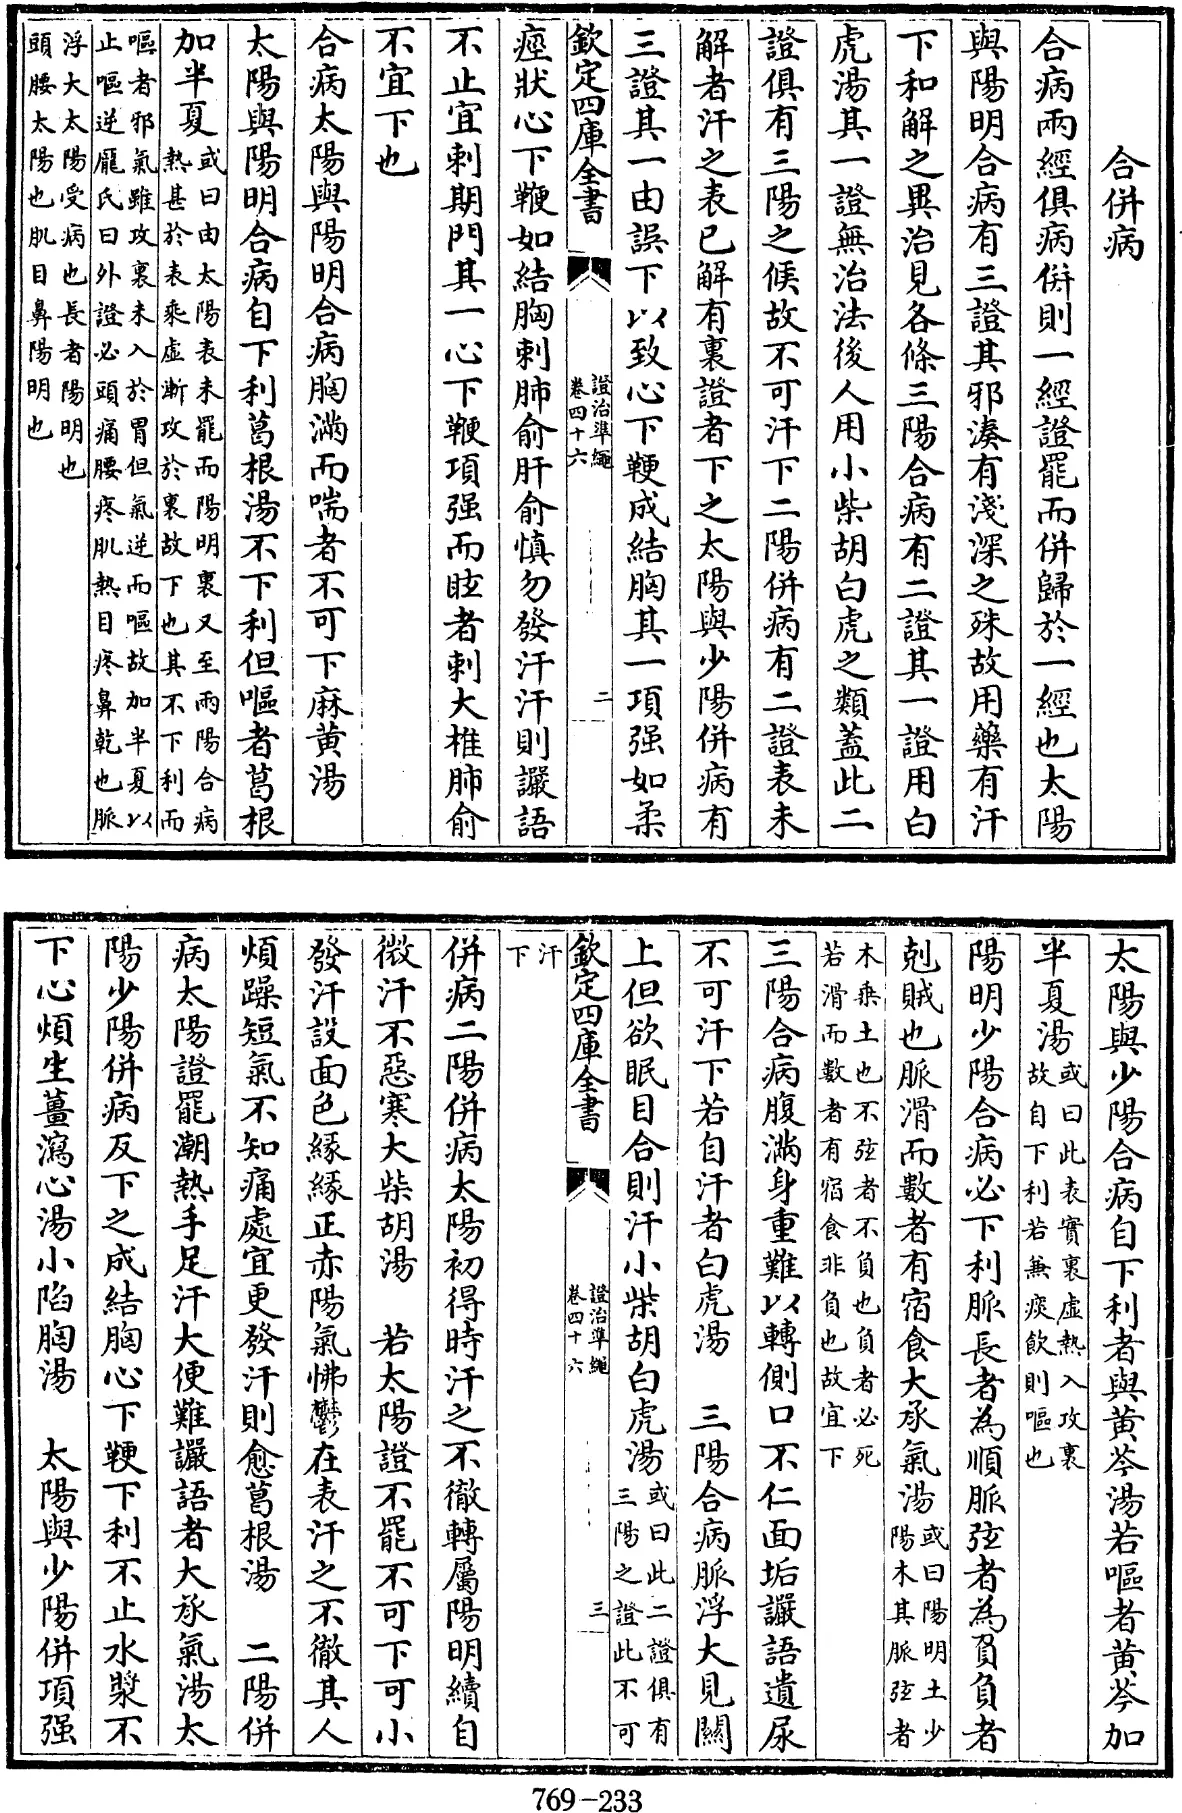 合併病
合病兩經俱病併則一經證罷而併歸於一經也太陽
與陽明合病有三證其邪湊有淺深之殊故用藥有汗
下和解之異治見各條三陽合病有二證其一證用白
虎湯其一證無治法後人用小柴胡白虎之類蓋此二
證俱有三陽之候故不可汗下二陽併病有二證表未
解者汗之表已解有裏證者下之太陽與少陽併病有
三證其一由誤下以致心下鞕成結胸其一項强如柔
欽定四庫全書
證治準繩
卷四十六
二
痙狀心下鞕如結胸刺肺俞肝俞慎勿發汗汗則讝語
不止宜刺期門其一心下鞕項强而眩者刺大椎肺俞
不宜下也
合病太陽與陽明合病胸滿而喘者不可下麻黄湯
太陽與陽明合病自下利葛根湯不下利但嘔者葛根
加半夏
或曰由太陽表未罷而陽明裏又至兩陽合病
熱甚於表乘虛漸攻於裏故下也其不下利而
嘔者邪氣雖攻裏未入於胃但氣逆而嘔故加半夏以
止嘔逆龐氏曰外證必頭痛腰疼肌熱目疼鼻乾也脈
浮大太陽受病也長者陽明也
頭腰太陽也肌目鼻陽明也
太陽與少陽合病自下利者與黄芩湯若嘔者黄芩加
半夏湯
或曰此表實裏虛熱入攻裏
故自下利若兼痰飲則嘔也
陽明少陽合病必下利脈長者為順脈弦者為負負者
剋賊也脈滑而數者有宿食大承氣湯
或曰陽明土少
陽木其脈弦者
木乘土也不弦者不負也負者必死
若滑而數者有宿食非負也故宜下
三陽合病腹滿身重難以轉側口不仁面垢讝語遺尿
不可汗下若自汗者白虎湯　三陽合病脈浮大見關
上但欲眠目合則汗小柴胡白虎湯
或曰此二證俱有
三陽之證此不可
欽定四庫全書
證治準繩
卷四十六
三
汗
下
併病二陽併病太陽初得時汗之不徹轉屬陽明續自
微汗不惡寒大柴胡湯　若太陽證不罷不可下可小
發汗設面色緣緣正赤陽氣怫鬱在表汗之不徹其人
煩躁短氣不知痛處宜更發汗則愈葛根湯　二陽併
病太陽證罷潮熱手足汗大便難讝語者大承氣湯太
陽少陽併病反下之成結胸心下鞕下利不止水漿不
下心煩生薑瀉心湯小陷胸湯　太陽與少陽併項强
769-233